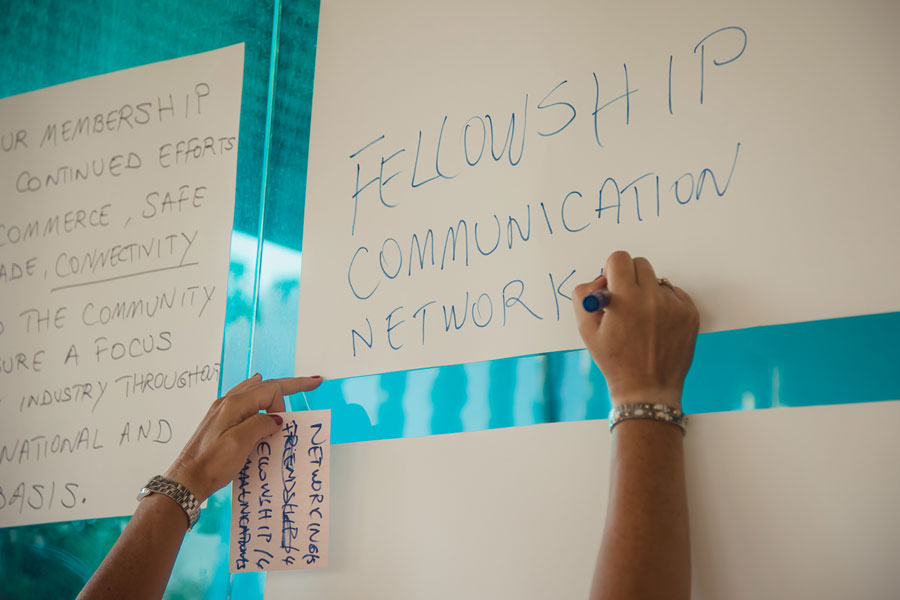 UR MEMBERSHIP
CONTINUED EFFORTS
COMMERCE, SAFE
ADE, CONNECTIVITY
THE COMMUNITY
URE A FOCUS
INDUSTRY THROUGHOUT
NATIONAL AND
BASIS.
FELLOWSHIP
COMMUNICATION
NETWORK
NETWORKING
FRIENDSHIP
ELLOWSHIP/4